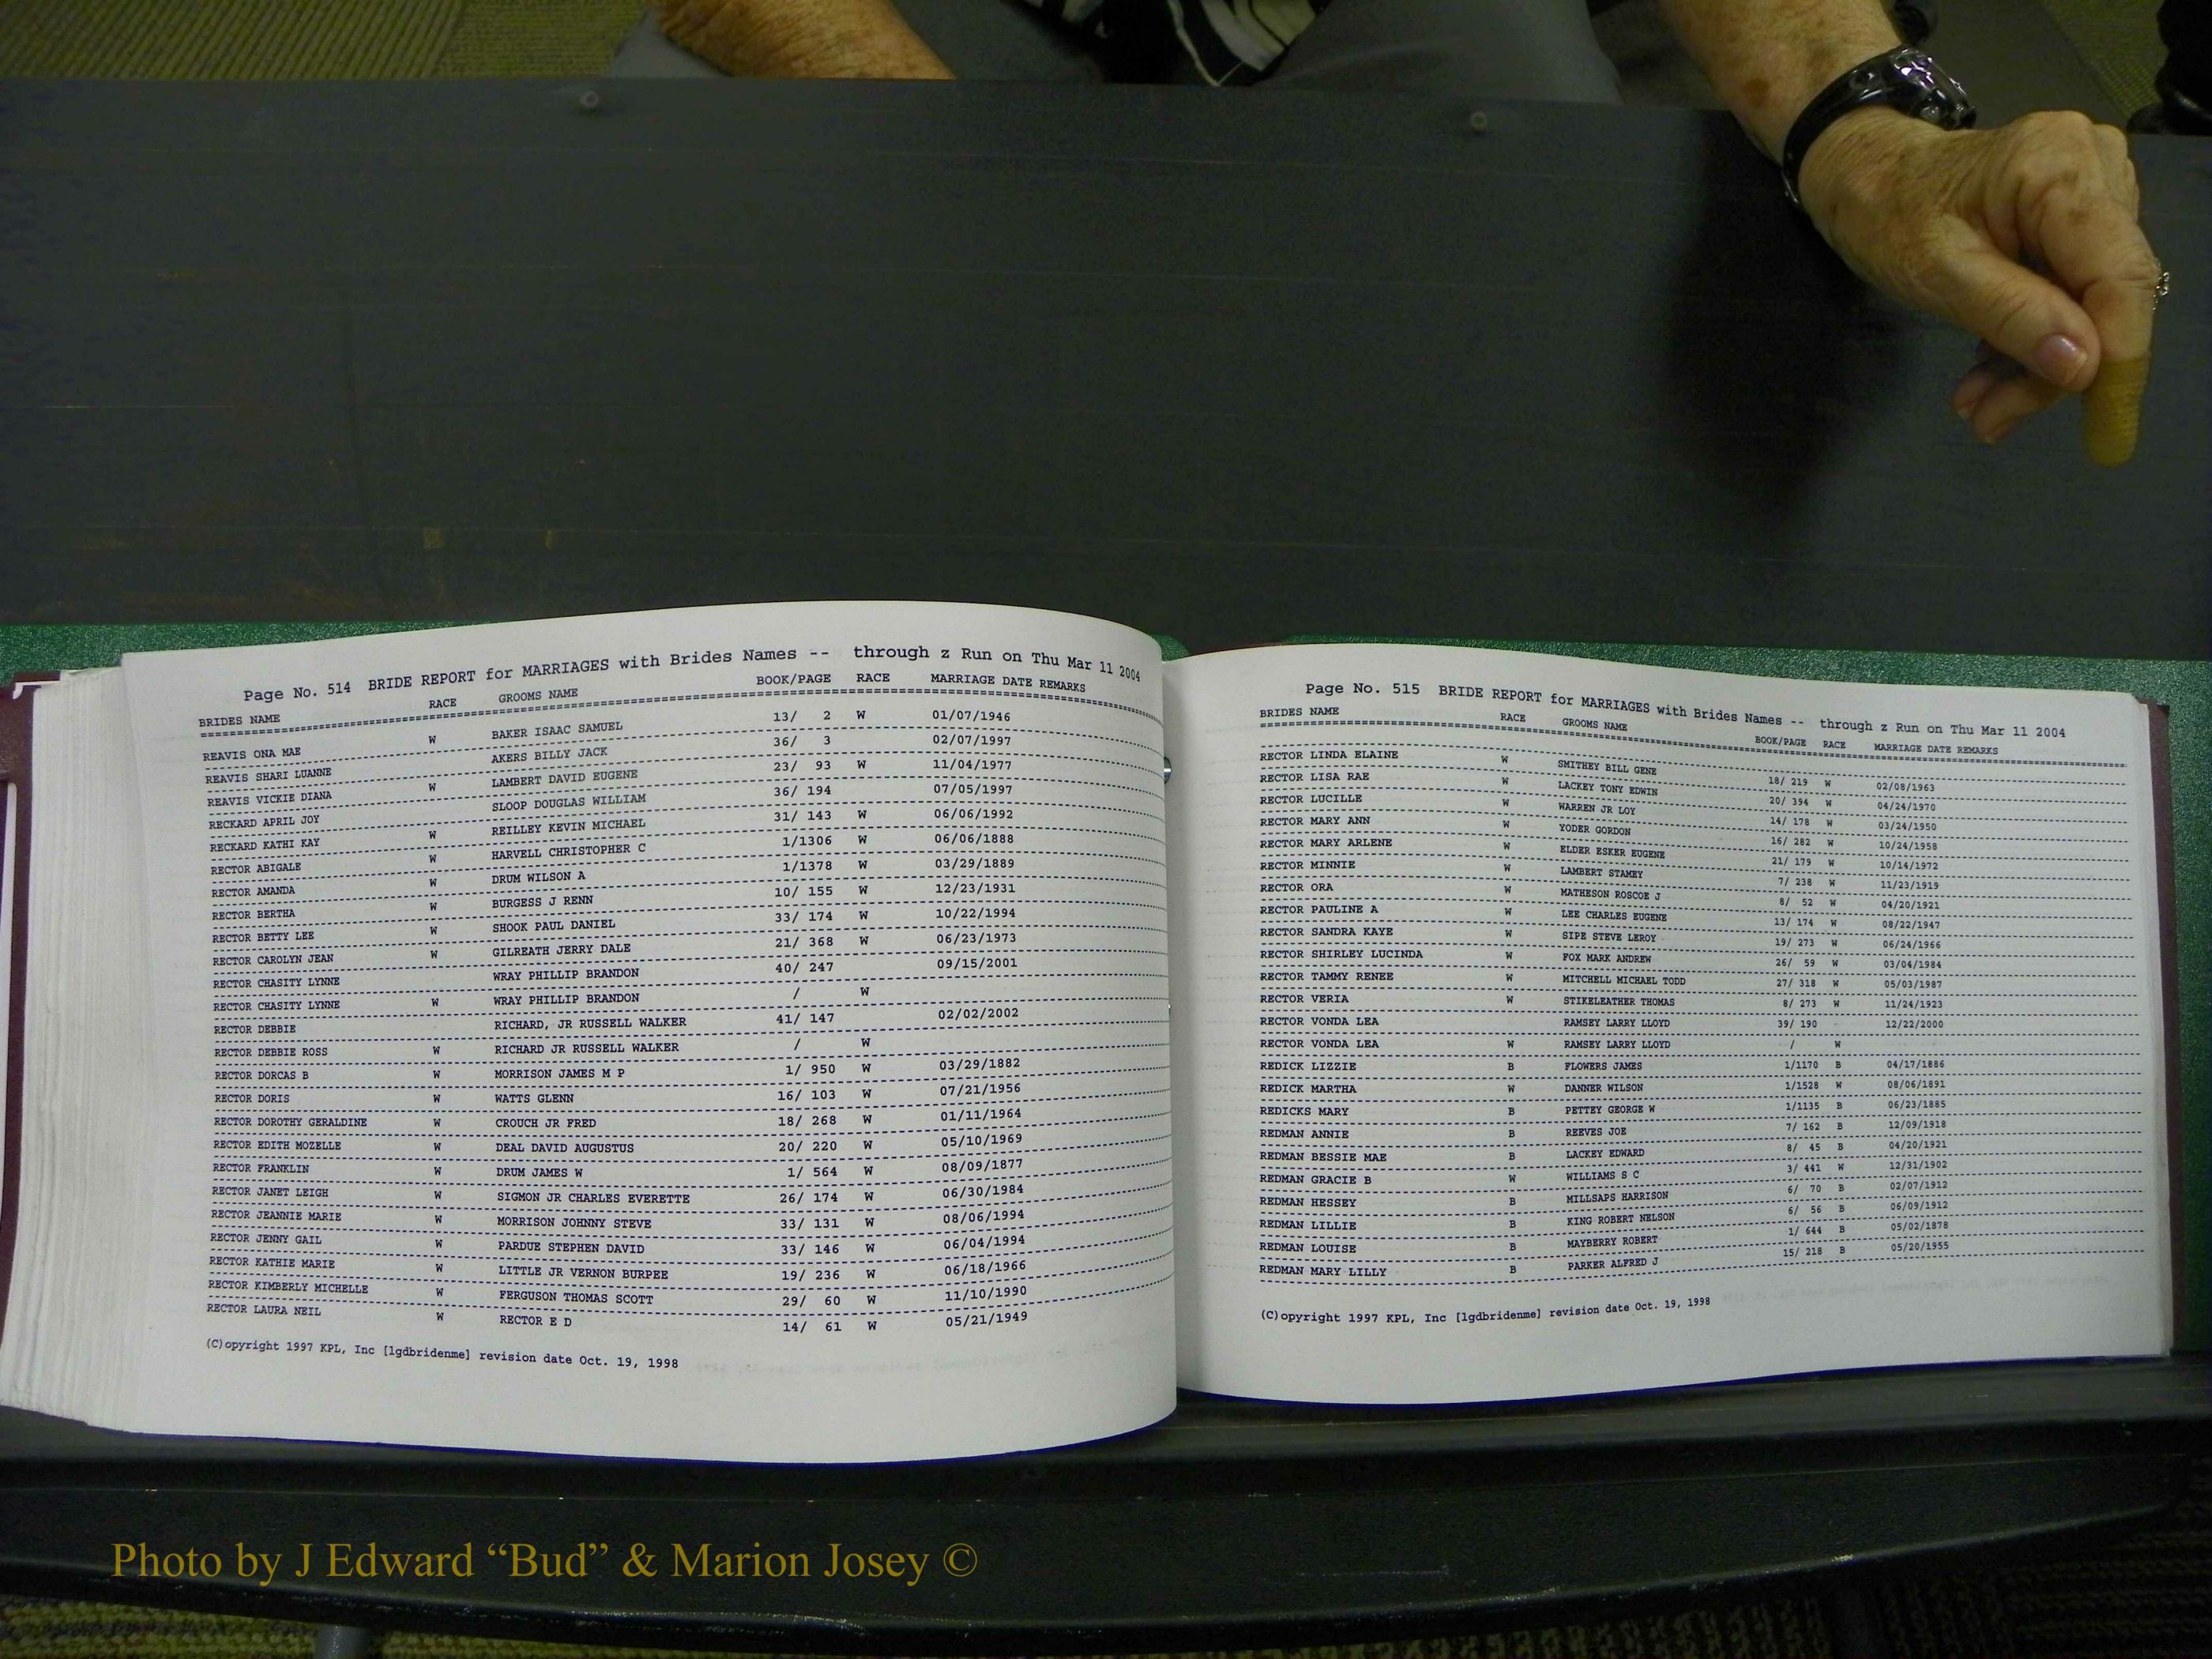 Page No. 514 BRIDE REPORT for MARRIAGES with Brides Names -- through z Run on Thu Mar 11 2004
BRIDES NAME RACE GROOMS NAME BOOK/PAGE RACE MARRIAGE DATE REMARKS
REAVIS ONA MAE W BAKER ISAAC SAMUEL 13/ 2 W 01/07/1946
REAVIS SHARI LUANNE AKERS BILLY JACK 36/ 3 02/07/1997
REAVIS VICKIE DIANA W LAMBERT DAVID EUGENE 23/ 93 W 11/04/1977
RECKARD APRIL JOY SLOOP DOUGLAS WILLIAM 36/ 194 07/05/1997
RECKARD KATHI KAY W REILLEY KEVIN MICHAEL 31/ 143 W 06/06/1992
RECTOR ABIGALE W HARVELL CHRISTOPHER C 1/1306 W 06/06/1888
RECTOR AMANDA W DRUM WILSON A 1/1378 W 03/29/1889
RECTOR BERTHA W BURGESS J RENN 10/ 155 W 12/23/1931
RECTOR BETTY LEE W SHOOK PAUL DANIEL 33/ 174 W 10/22/1994
RECTOR CAROLYN JEAN W GILREATH JERRY DALE 21/ 368 W 06/23/1973
RECTOR CHASITY LYNNE WRAY PHILLIP BRANDON 40/ 247 09/15/2001
RECTOR CHASITY LYNNE W WRAY PHILLIP BRANDON / W
RECTOR DEBBIE RICHARD, JR RUSSELL WALKER 41/ 147 02/02/2002
RECTOR DEBBIE ROSS W RICHARD JR RUSSELL WALKER / W
RECTOR DORCAS B W MORRISON JAMES M P 1/ 950 W 03/29/1882
RECTOR DORIS W WATTS GLENN 16/ 103 W 07/21/1956
RECTOR DOROTHY GERALDINE W CROUCH JR FRED 18/ 268 W 01/11/1964
RECTOR EDITH MOZELLE W DEAL DAVID AUGUSTUS 20/ 220 W 05/10/1969
RECTOR FRANKLIN W DRUM JAMES W 1/ 564 W 08/09/1877
RECTOR JANET LEIGH W SIGMON JR CHARLES EVERETTE 26/ 174 W 06/30/1984
RECTOR JEANNIE MARIE W MORRISON JOHNNY STEVE 33/ 131 W 08/06/1994
RECTOR JENNY GAIL W PARDUE STEPHEN DAVID 33/ 146 W 06/04/1994
RECTOR KATHIE MARIE W LITTLE JR VERNON BURPEE 19/ 236 W 06/18/1966
RECTOR KIMBERLY MICHELLE W FERGUSON THOMAS SCOTT 29/ 60 W 11/10/1990
RECTOR LAURA NEIL W RECTOR E D 14/ 61 W 05/21/1949
(C)opyright 1997 KPL, Inc [lgdbridenme] revision date Oct. 19, 1998
Page No. 515 BRIDE REPORT for MARRIAGES with Brides Names -- through z Run on Thu Mar 11 2004
BRIDES NAME RACE GROOMS NAME BOOK/PAGE RACE MARRIAGE DATE REMARKS
RECTOR LINDA ELAINE W SMITHEY BILL GENE 18/ 219 W 02/08/1963
RECTOR LISA RAE W LACKEY TONY EDWIN 20/ 394 W 04/24/1970
RECTOR LUCILLE W WARREN JR LOY 14/ 178 W 03/24/1950
RECTOR MARY ANN W YODER GORDON 16/ 282 W 10/24/1958
RECTOR MARY ARLENE W ELDER ESKER EUGENE 21/ 179 W 10/14/1972
RECTOR MINNIE W LAMBERT STAMEY 7/ 238 W 11/23/1919
RECTOR ORA W MATHESON ROSCOE J 8/ 52 W 04/20/1921
RECTOR PAULINE A W LEE CHARLES EUGENE 13/ 174 W 08/22/1947
RECTOR SANDRA KAYE W SIPE STEVE LEROY 19/ 273 W 06/24/1966
RECTOR SHIRLEY LUCINDA W FOX MARK ANDREW 26/ 59 W 03/04/1984
RECTOR TAMMY RENEE W MITCHELL MICHAEL TODD 27/ 318 W 05/03/1987
RECTOR VERIA W STIKELEATHER THOMAS 8/ 273 W 11/24/1923
RECTOR VONDA LEA RAMSEY LARRY LLOYD 39/ 190 12/22/2000
RECTOR VONDA LEA W RAMSEY LARRY LLOYD / W
REDICK LIZZIE B FLOWERS JAMES 1/1170 B 04/17/1886
REDICK MARTHA W DANNER WILSON 1/1528 W 08/06/1891
REDICKS MARY B PETTEY GEORGE W 1/1135 B 06/23/1885
REDMAN ANNIE B REEVES JOE 7/ 162 B 12/09/1918
REDMAN BESSIE MAE B LACKEY EDWARD 8/ 45 B 04/20/1921
REDMAN GRACIE B W WILLIAMS S C 3/ 441 W 12/31/1902
REDMAN HESSEY B MILLSAPS HARRISON 6/ 70 B 02/07/1912
REDMAN LILLIE B KING ROBERT NELSON 6/ 56 B 06/09/1912
REDMAN LOUISE B MAYBERRY ROBERT 1/ 644 B 05/02/1878
REDMAN MARY LILLY B PARKER ALFRED J 15/ 218 B 05/20/1955
(C)opyright 1997 KPL, Inc [lgdbridenme] revision date Oct. 19, 1998
Photo by J Edward “Bud” & Marion Josey ©